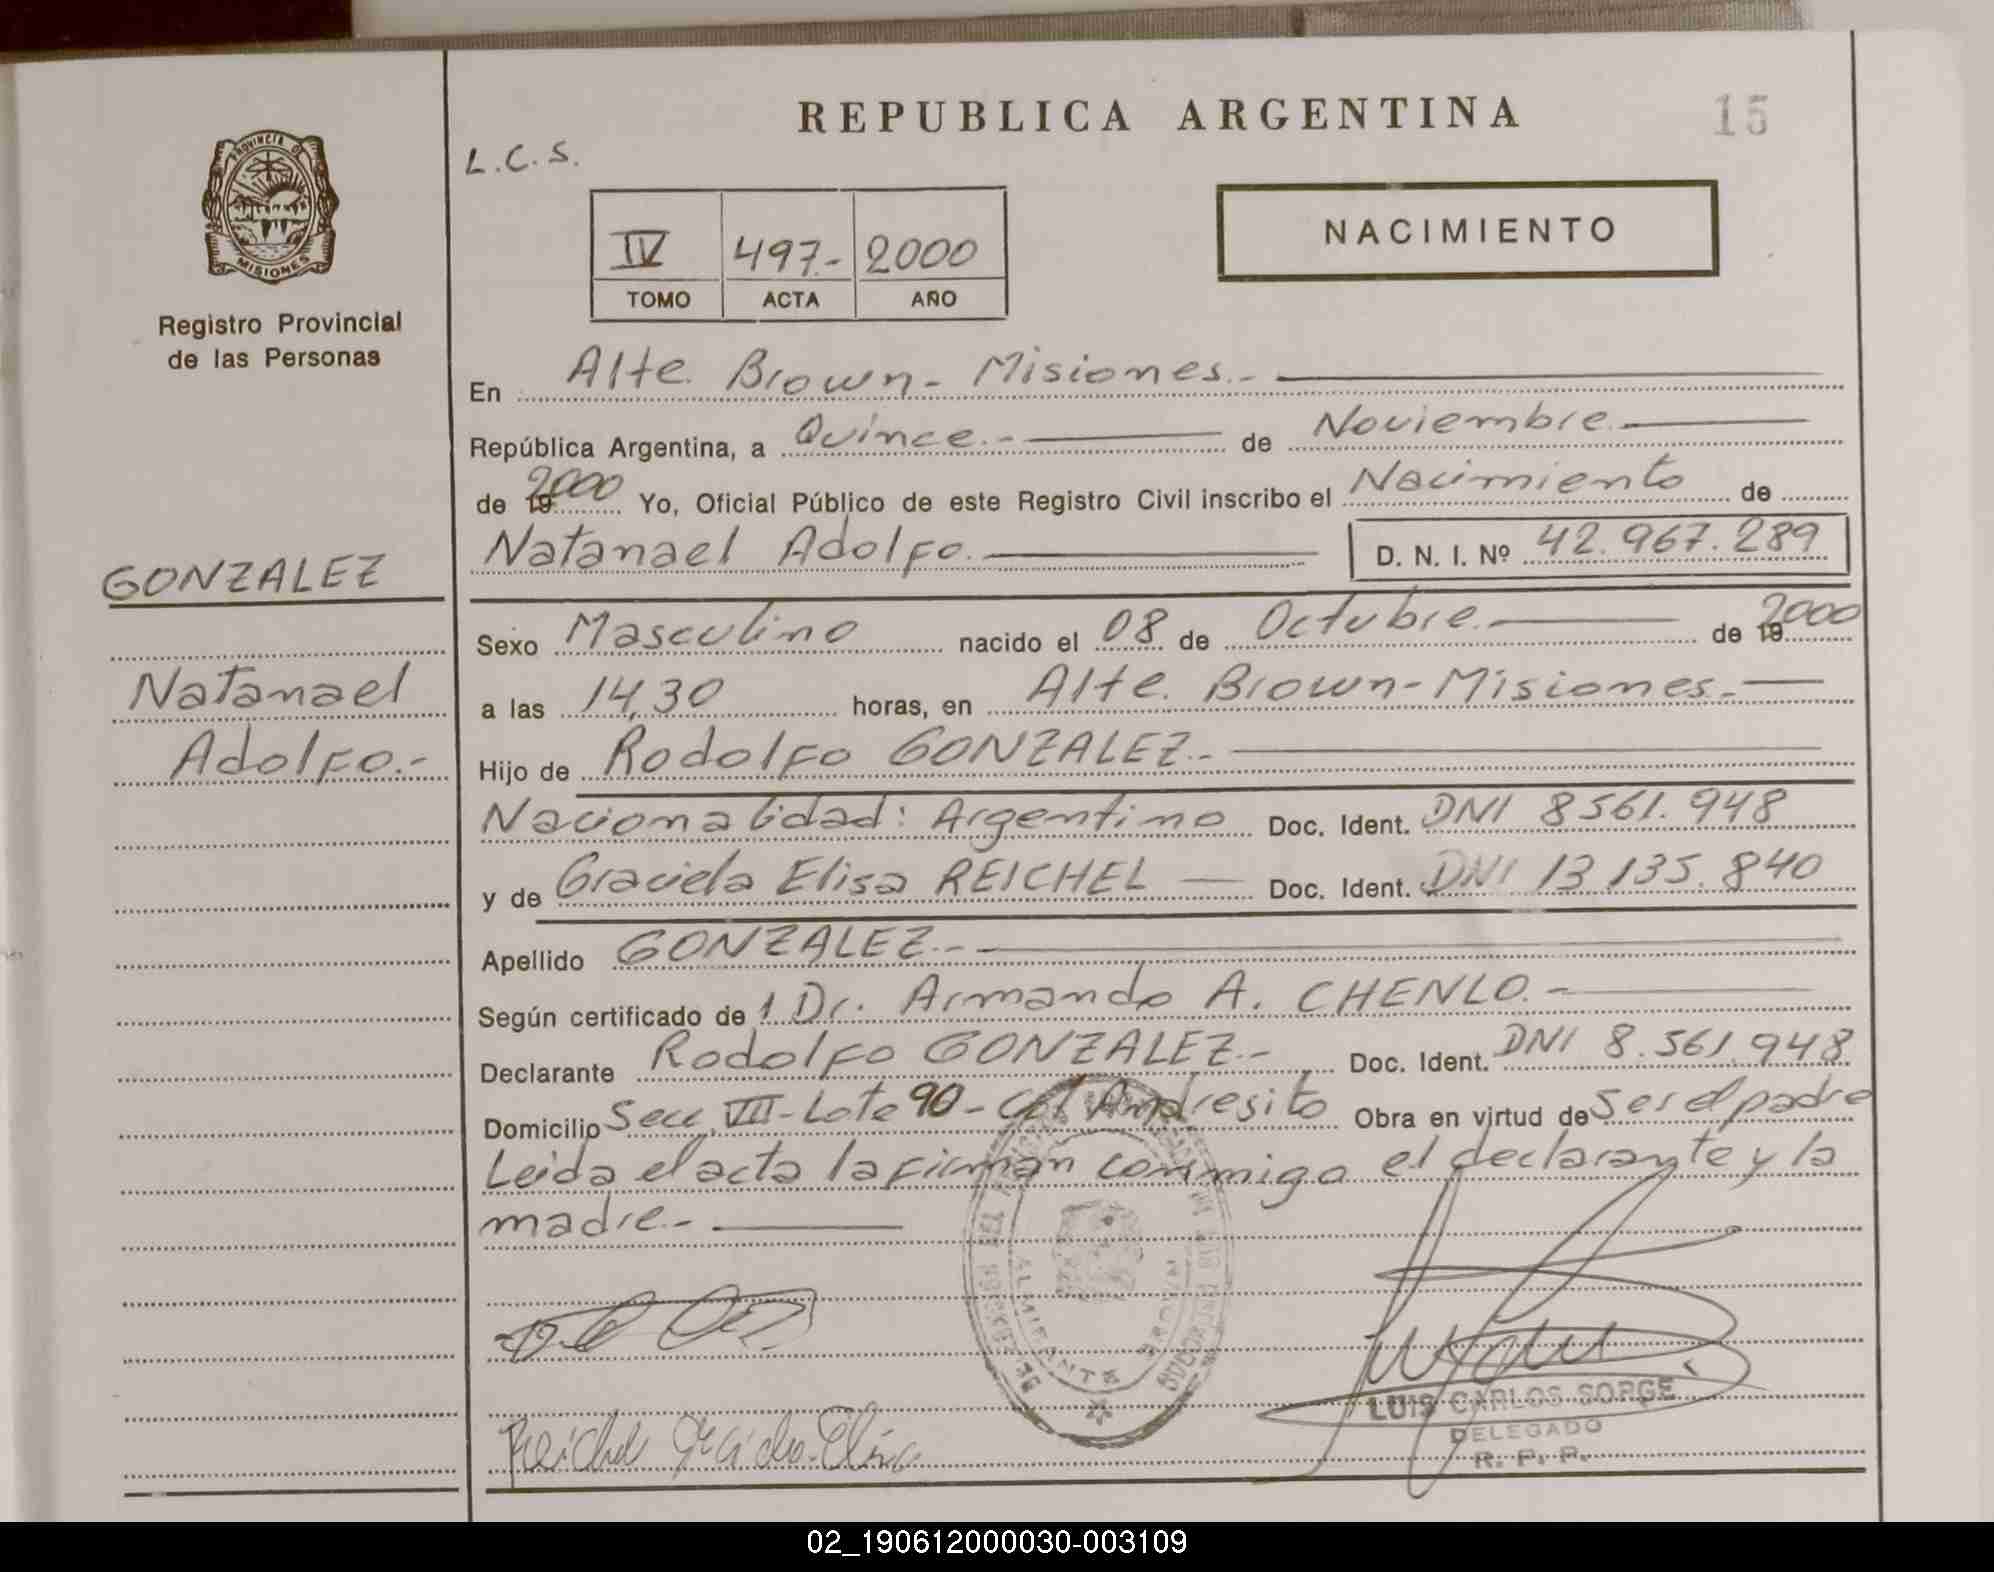 REPUBLICA ARGENTINA
15
L.C.S.
PROVINCIA DE
MISIONES
Registro Provincial
de las Personas
IV 497.- 2000
TOMO ACTA AÑO
NACIMIENTO
En Alte. Brown - Misiones.-
República Argentina, a Quince.- de Noviembre.
de 19 2000 Yo, Oficial Público de este Registro Civil inscribo el Nacimiento de
Natanael Adolfo. D. N. I. Nº 42.967.289
GONZALEZ
Natanael
Adolfo.-
Sexo Masculino nacido el 08 de Octubre. de 19 2000
a las 14,30 horas, en Alte. Brown - Misiones.-
Hijo de Rodolfo GONZALEZ.-
Nacionalidad: Argentino Doc. Ident. DNI 8561.948
y de Graciela Elisa REICHEL Doc. Ident. DNI 13.135.840
Apellido GONZALEZ.-
Según certificado de 1 Dr. Armando A. CHENLO.-
Declarante Rodolfo GONZALEZ.- Doc. Ident. DNI 8.561.948
Domicilio Secc. VIII - Lote 90 - Col Andresito Obra en virtud de ser el padre
Leida el acta la firman conmigo el declarante y la
madre.-
ALMIRANTE BROWN
Reichel Graciela Elisa
LUIS CARLOS SORGE
DELEGADO
R. P. P.
02_190612000030-003109